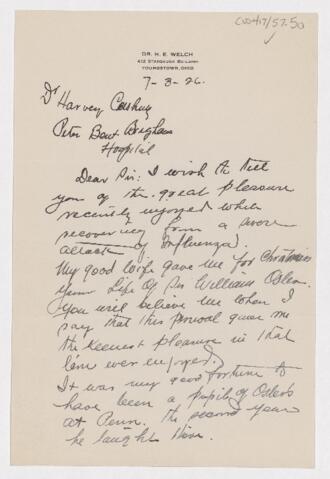 CUS417/57.50
DR. H. E. WELCH
412 STAMBAUGH BUILDING
YOUNGSTOWN, OHIO
7-3-26.
Dr Harvey Cushing
Peter Bent Brigham
Hospital
Dear Sir: I wish to tell
you of the great pleasure
recently enjoyed while
recovering from a severe
attack of Influenza.
My good wife gave me for Christmas
your Life of Sir William Osler.
You will believe me when I
say that this perusal gave me
the keenest pleasure in that
line ever enjoyed.
It was my good fortune to
have been a pupil of Osler's
at Penn. the second year
he taught there.